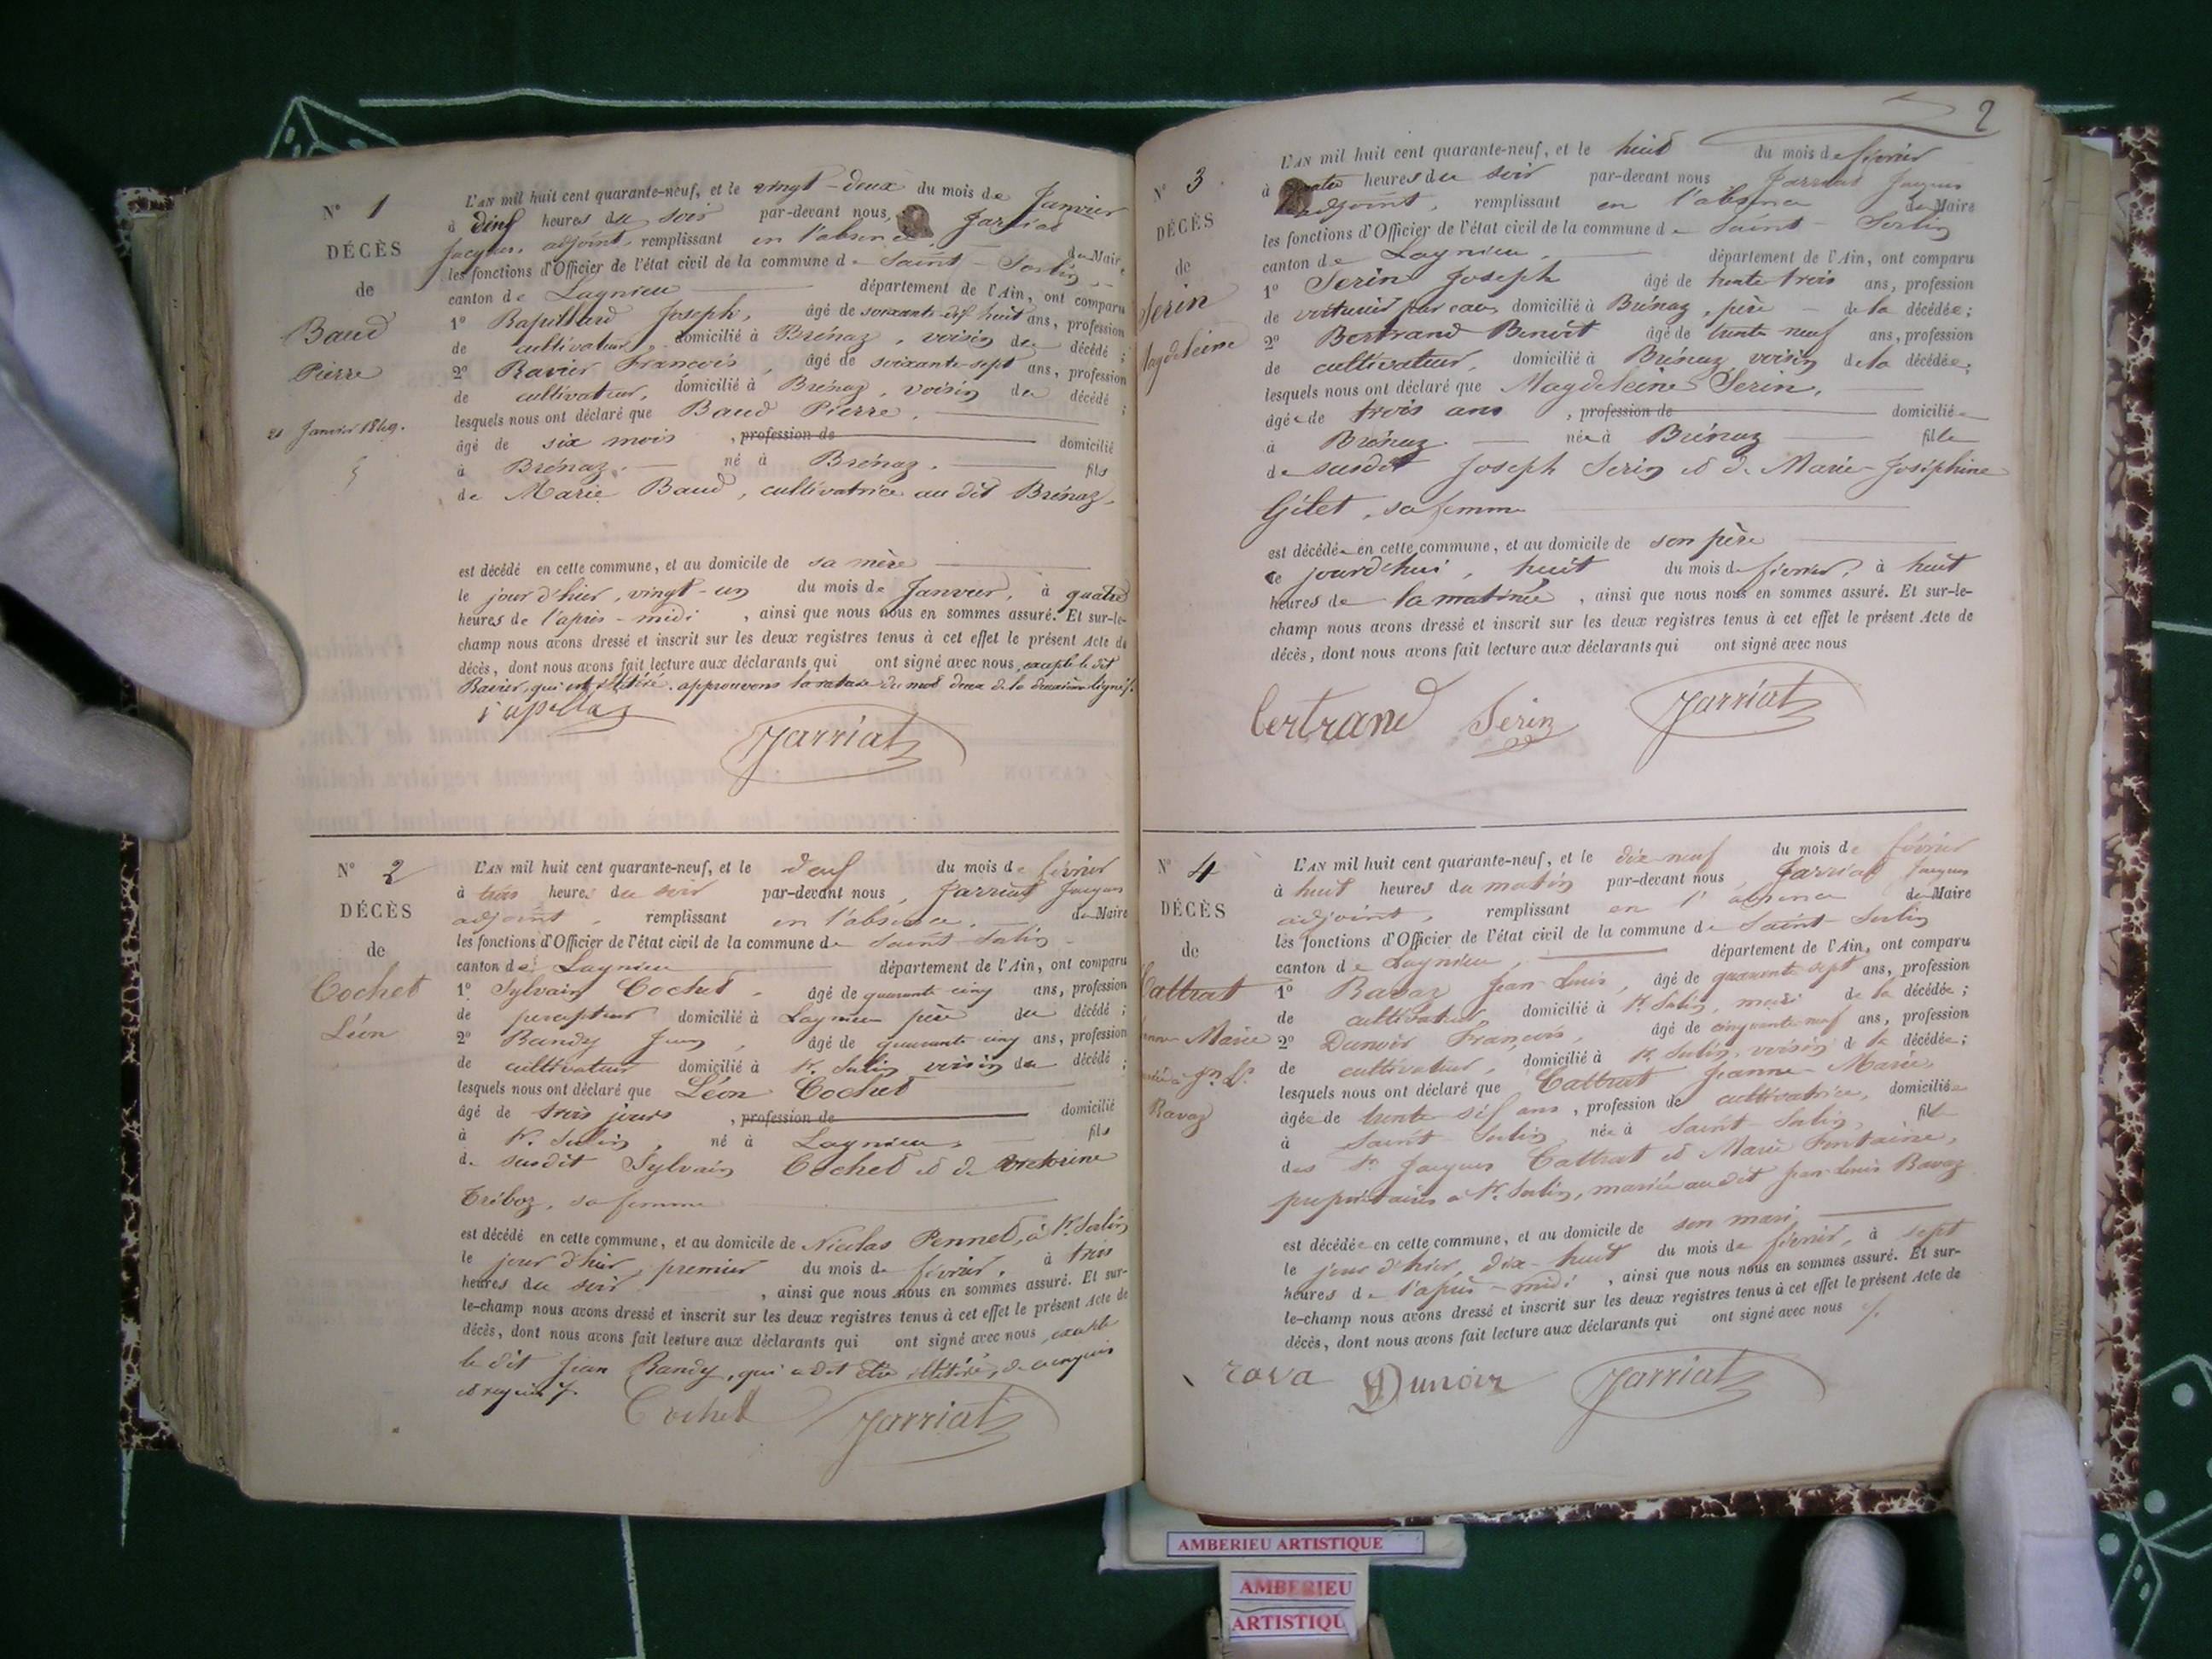 N° 1
DÉCÈS
de
Baud
Pierre
21 Janvier 1849.
L'AN mil huit cent quarante-neuf, et le vingt-deux du mois de Janvier
à cinq heures du soir par-devant nous, Jarriat
Jacques, adjoint, remplissant en l'absence du Maire
les fonctions d'Officier de l'état civil de la commune de Saint-Sorlin
canton de Lagnieu département de l'Ain, ont comparu
1° Rapillard Joseph, âgé de soixante-dix huit ans, profession
de cultivateur, domicilié à Brénaz, voisin du décédé;
2° Ravier François, âgé de soixante-sept ans, profession
de cultivateur, domicilié à Brénaz, voisin du décédé;
lesquels nous ont déclaré que Baud Pierre,
âgé de six mois, profession de domicilié
à Brénaz. né à Brénaz. fils
de Marie Baud, cultivatrice au dit Brénaz,
est décédé en cette commune, et au domicile de sa mère
le jour d'hier, vingt-un du mois de Janvier, à quatre
heures de l'après-midi, ainsi que nous nous en sommes assuré. Et sur-le-
champ nous avons dressé et inscrit sur les deux registres tenus à cet effet le présent Acte de
décès, dont nous avons fait lecture aux déclarants qui ont signé avec nous, excepté le dit
Ravier, qui est illitéré. approuvons la rature du mot deux de la deuxième ligne
Jarriat
N° 2
DÉCÈS
de
Cochet
Léon
L'AN mil huit cent quarante-neuf, et le deux du mois de février
à trois heures du soir par-devant nous, Jarriat Jacques
adjoint, remplissant en l'absence, du Maire
les fonctions d'Officier de l'état civil de la commune de Saint-Sorlin
canton de Lagnieu département de l'Ain, ont comparu
1° Sylvain Cochet, âgé de quarante cinq ans, profession
de percepteur domicilié à Lagnieu père du décédé;
2° Randy Jean, âgé de quarante cinq ans, profession
de cultivateur domicilié à St. Sorlin voisin du décédé;
lesquels nous ont déclaré que Léon Cochet
âgé de trois jours, profession de domicilié
à St. Sorlin, né à Lagnieu, fils
de susdit Sylvain Cochet et de Victorine
Tréboz, sa femme
est décédé en cette commune, et au domicile de Nicolas Pennet, à St. Sorlin
le jour d'hier, premier du mois de février, à trois
heures du soir, ainsi que nous nous en sommes assuré. Et sur-
le-champ nous avons dressé et inscrit sur les deux registres tenus à cet effet le présent Acte de
décès, dont nous avons fait lecture aux déclarants qui ont signé avec nous, excepté
le dit Jean Randy, qui a dit être illitéré, de ce enquis
et requis
Cochet Jarriat
2
N° 3
DÉCÈS
de
Serin
Magdeleine
L'AN mil huit cent quarante-neuf, et le huit du mois de février
à quatre heures du soir par-devant nous Jarriat Jacques
adjoint, remplissant en l'absence du Maire
les fonctions d'Officier de l'état civil de la commune de Saint-Sorlin
canton de Lagnieu, département de l'Ain, ont comparu
1° Serin Joseph âgé de trente-trois ans, profession
de voiturier par eau, domicilié à Brénaz, père de la décédée;
2° Bertrand Benoît âgé de trente neuf ans, profession
de cultivateur, domicilié à Brénaz voisin de la décédée;
lesquels nous ont déclaré que Magdeleine Serin,
âgée de trois ans, profession de domiciliée
à Brénaz. née à Brénaz fille
de susdit Joseph Serin et de Marie-Joséphine
Gilet, sa femme
est décédée en cette commune, et au domicile de son père
ce jourd'hui, huit du mois de février, à huit
heures de la matinée, ainsi que nous nous en sommes assuré. Et sur-le-
champ nous avons dressé et inscrit sur les deux registres tenus à cet effet le présent Acte de
décès, dont nous avons fait lecture aux déclarants qui ont signé avec nous
bertrand Serin Jarriat
N° 4
DÉCÈS
de
Cattrat
Marie
mariée à Jn. Ls.
Ravaz
L'AN mil huit cent quarante-neuf, et le dix-neuf du mois de février
à huit heures du matin par-devant nous, Jarriat Jacques
adjoint, remplissant en l'absence du Maire
les fonctions d'Officier de l'état civil de la commune de Saint-Sorlin
canton de Lagnieu, département de l'Ain, ont comparu
1° Ravaz Jean-Louis, âgé de quarante sept ans, profession
de cultivateur, domicilié à St. Sorlin, mari de la décédée;
2° Dunoir François, âgé de cinquante neuf ans, profession
de cultivateur, domicilié à St. Sorlin, voisin de la décédée;
lesquels nous ont déclaré que Cattrat Jeanne-Marie,
âgée de trente six ans, profession de cultivatrice, domiciliée
à Saint-Sorlin, née à Saint-Sorlin, fille
des Srs Jacques Cattrat et Marie Fontaine,
propriétaires à St. Sorlin, mariée au dit Jean-Louis Ravaz
est décédée en cette commune, et au domicile de son mari
le jour d'hier, dix-huit du mois de février, à sept
heures de l'après-midi, ainsi que nous nous en sommes assuré. Et sur-
le-champ nous avons dressé et inscrit sur les deux registres tenus à cet effet le présent Acte de
décès, dont nous avons fait lecture aux déclarants qui ont signé avec nous
rava Dunoir Jarriat
AMBERIEU ARTISTIQUE
AMBERIEU
ARTISTIQU